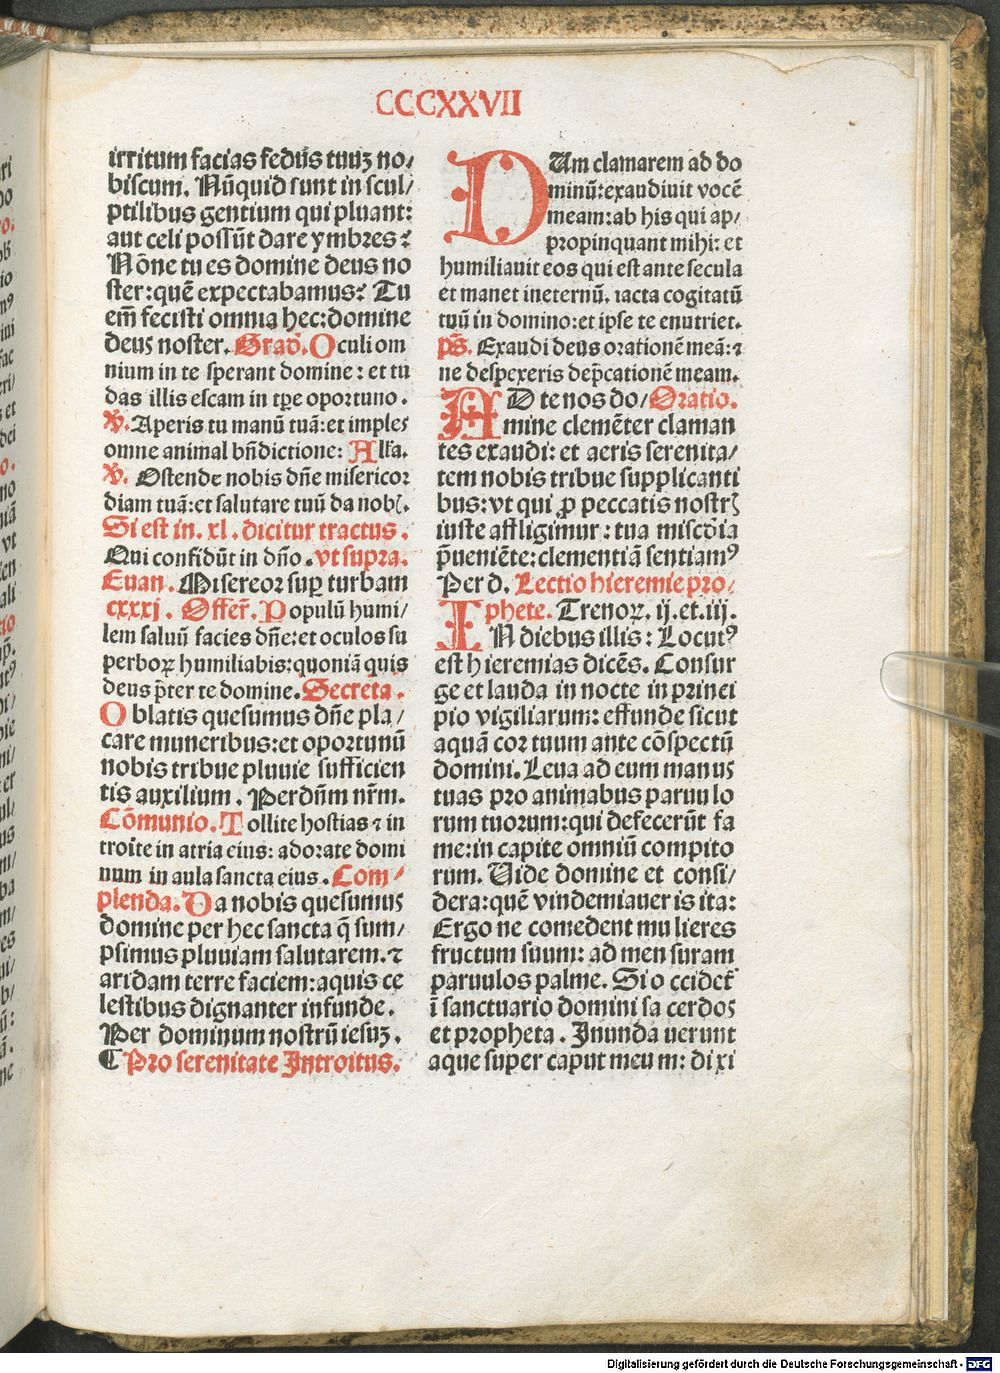 CCCXXVII
irritum facias fedus tuuʒ no/
biscum. Nūquid sunt in scul/
ptilibus gentium qui pluant:
aut celi possūt dare ymbres?
Nōne tu es domine deus no
ster: quē expectabamus? Tu
em̄ fecisti omnia hec: domine
deus noster. Grad̄. Oculi om
nium in te sperant domine: et tu
das illis escam in tp̄e oportuno.
℣. Aperis tu manū tuā: et imples
omne animal bn̄dictione: Alla.
℣. Ostende nobis dn̄e misericor
diam tuā: et salutare tuū da nob̄.
Si est in. xl. dicitur tractus.
Qui confidūt in dn̄o. vt supra.
Euan. Misereor suꝑ turbam
cxxxj. Offer̄. Populū humi/
lem saluū facies dn̄e: et oculos su
perboꝝ humiliabis: quoniā quis
deus p̄ter te domine. Secreta.
Oblatis quesumus dn̄e pla/
care muneribus: et oportunū
nobis tribue pluuie sufficien
tis auxilium. Per dn̄m nr̄m.
Cōmunio. Tollite hostias ⁊ in
troite in atria eius: adorate domi
num in aula sancta eius. Com/
plenda. Da nobis quesumus
domine per hec sancta q̄ sum/
psimus pluuiam salutarem. ⁊
aridam terre faciem: aquis ce
lestibus dignanter infunde.
Per dominum nostrū iesuʒ.
¶ Pro serenitate Introitus.
DUm clamarem ad do
minū: exaudiuit vocē
meam: ab his qui ap/
propinquant mihi: et
humiliauit eos qui est ante secula
et manet in eternū. iacta cogitatū
tuū in domino: et ipse te enutriet.
p̄s. Exaudi deus orationē meā: ⁊
ne despexeris dep̄cationē meam.
AD te nos do/ Oratio.
mine clemēter claman
tes exaudi: et aeris serenita/
tem nobis tribue supplicanti
bus: vt qui ꝓ peccatis nostrꝭ
iuste affligimur: tua mis̄cōia
p̄ueniēte: clementiā sentiamꝰ
Per d. Lectio hieremie pro/
phete. Trenoꝝ. ij. et. iij.
IN diebus illis: Locutꝰ
est hieremias dicēs. Consur
ge et lauda in nocte in princi
pio vigiliarum: effunde sicut
aquā cor tuum ante cōspectū
domini. Leua ad eum manus
tuas pro animabus paruulo
rum tuorum: qui defecerūt fa
me: in capite omniū compito
rum. Uide domine et consi/
dera: quē vindemiaueris ita:
Ergo ne comedent mulieres
fructum suum: ad mensuram
paruulos palme. Si occidet̄
ī sanctuario domini sacerdos
et propheta. Inundauerunt
aque super caput meum: dixi
Digitalisierung gefördert durch die Deutsche Forschungsgemeinschaft - DFG